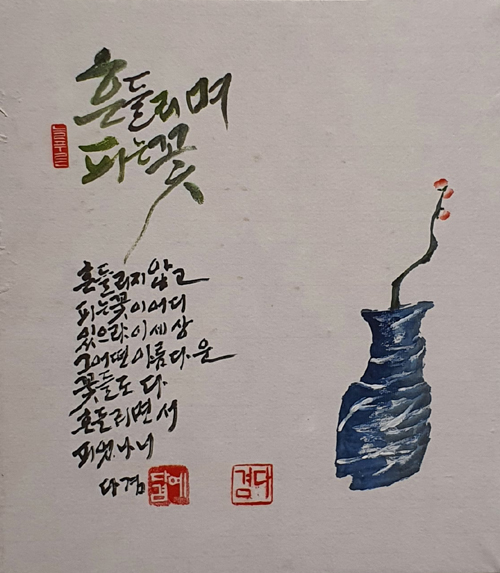 흔들리며
피는꽃
늘푸른
흔들리지않고
피는꽃이어디
있으랴이세상
그어떤아름다운
꽃들도 다
흔들리면서
피었나니
다겸
다겸